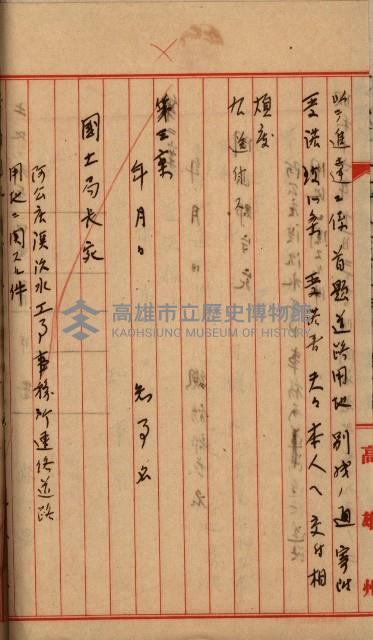 以テ進達ニ係ル首題道路用地別紙ノ通寄附
受諾致候条受諾書夫々本人ヘ交付相
煩度
右進依命
第三案
年月日 知事名
国土局長宛
阿公店溪治水工事事務所連絡道路
用地ニ関スル件
高雄州
高雄市立歷史博物館
KAOHSIUNG MUSEUM OF HISTORY